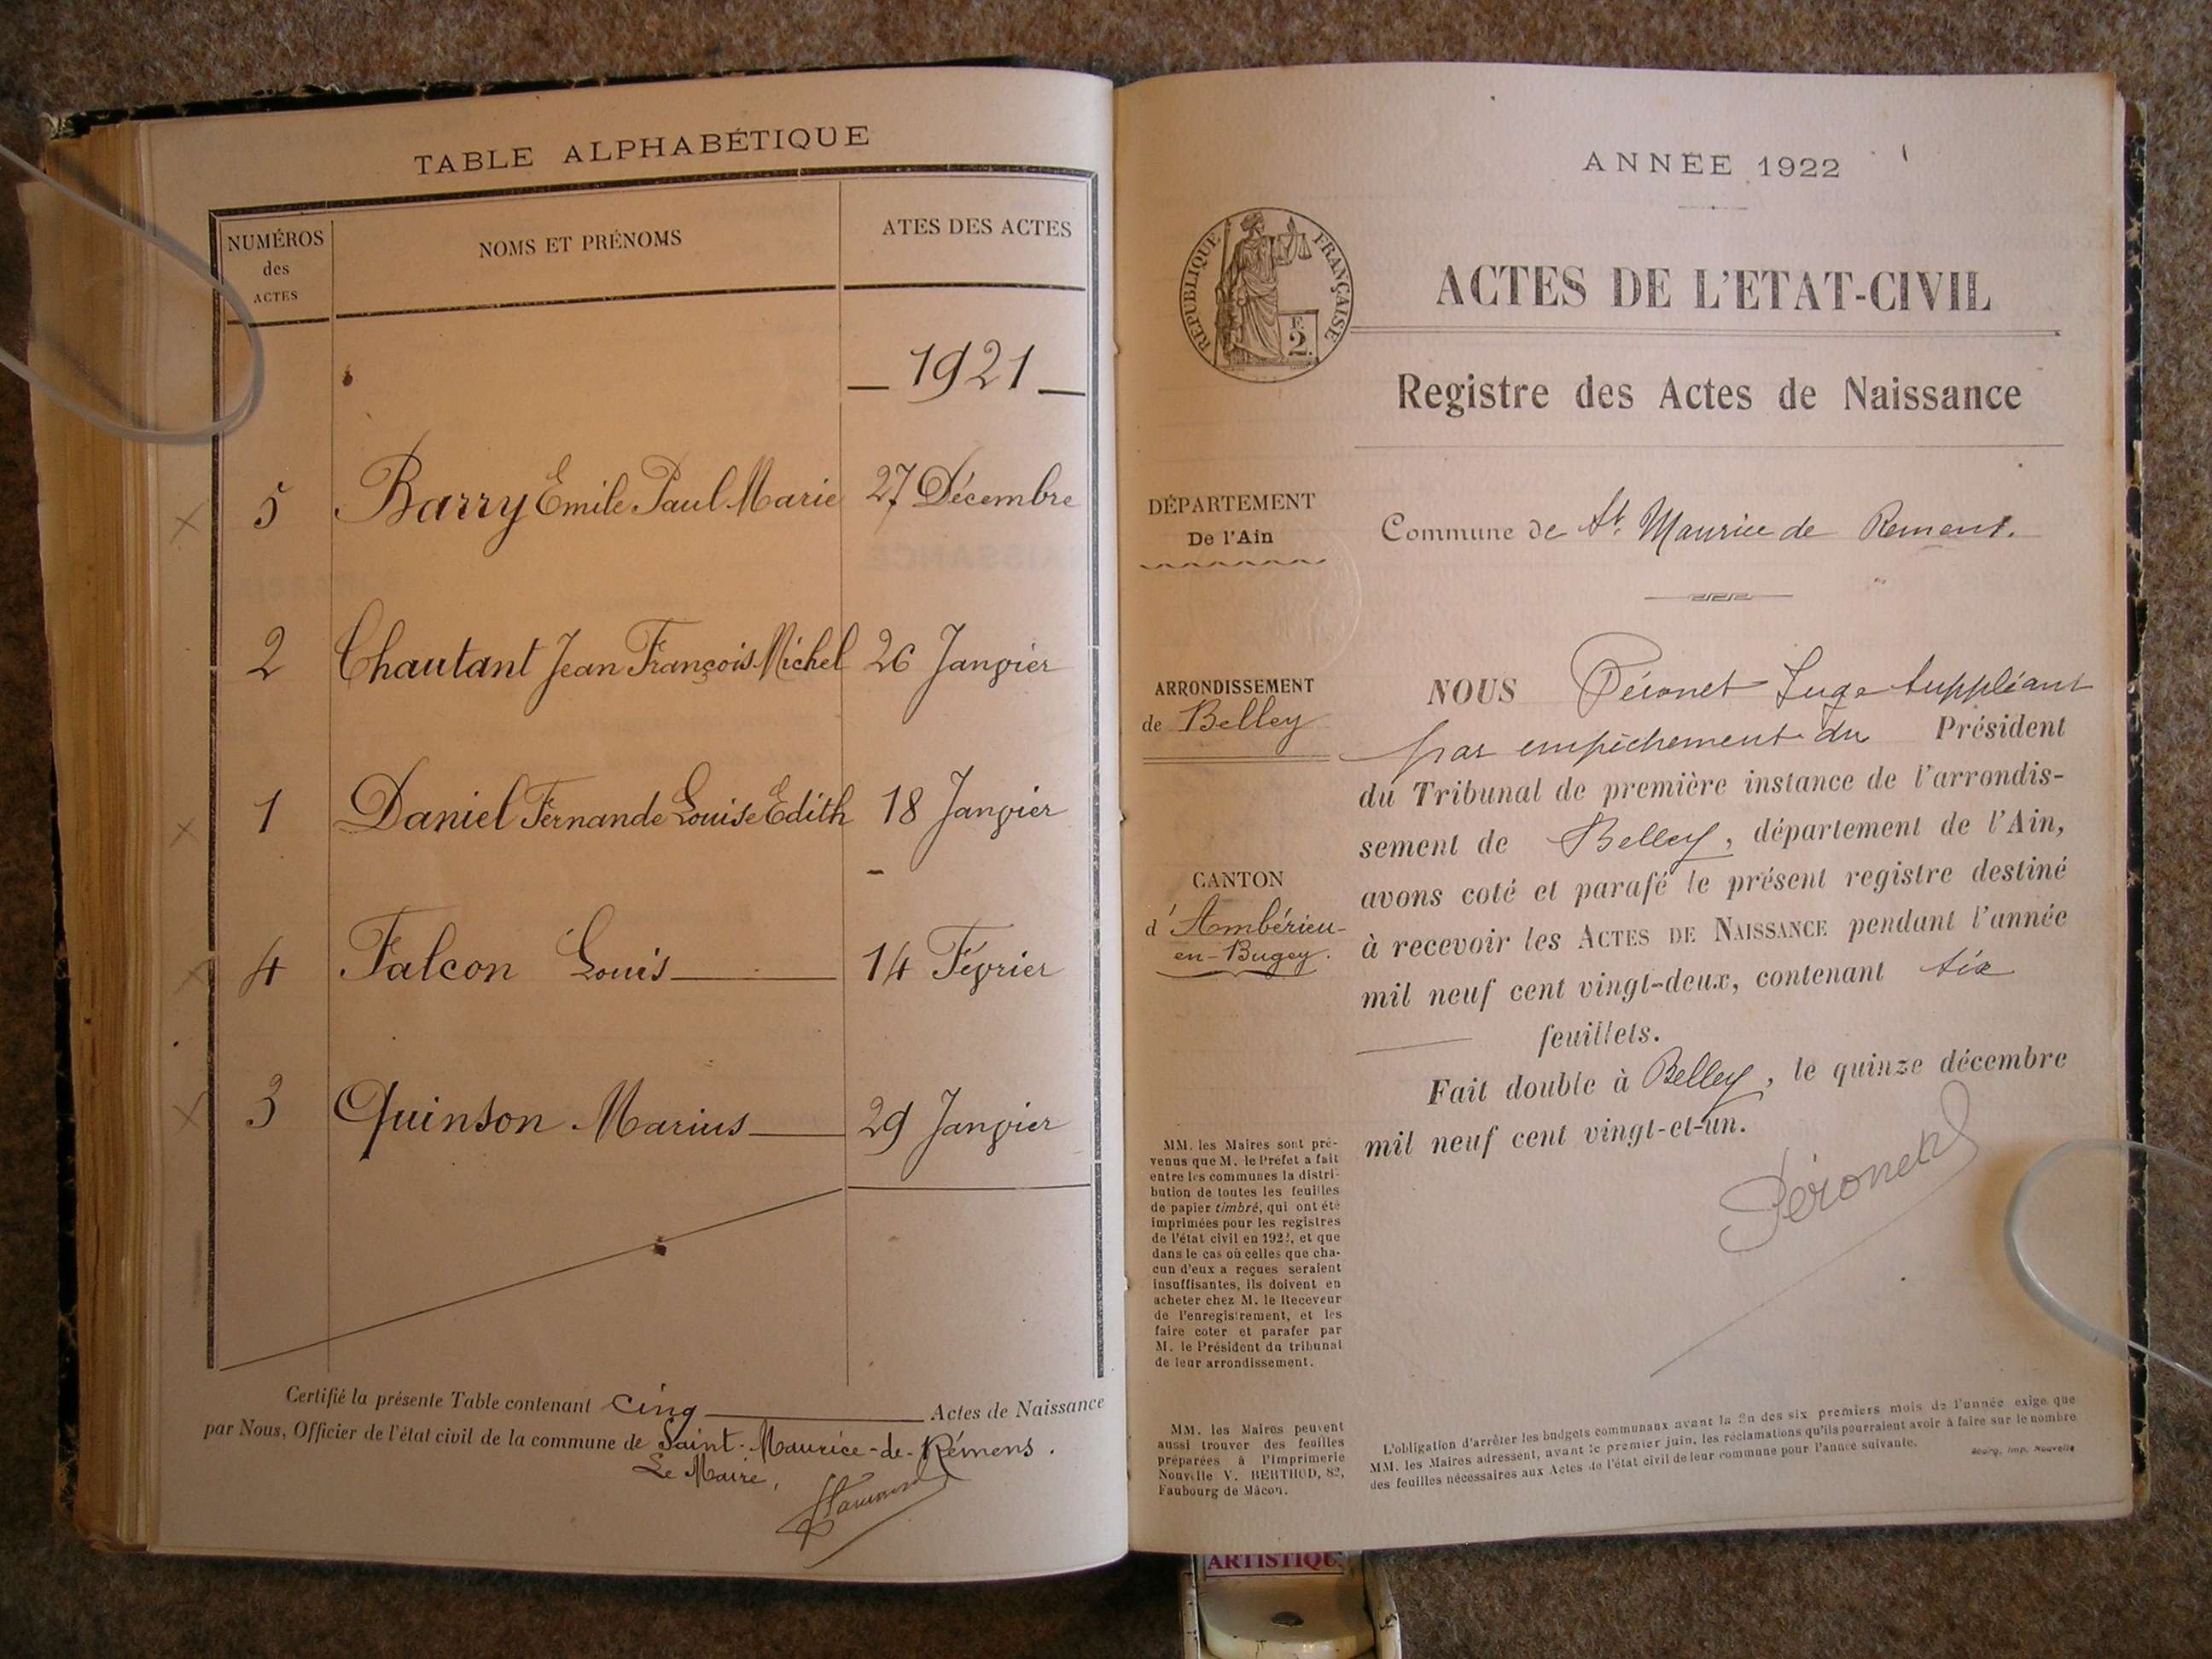 TABLE ALPHABÉTIQUE
NUMÉROS
des
ACTES
NOMS ET PRÉNOMS
ATES DES ACTES
1921
5 Barry Emile Paul Marie 27 Décembre
2 Chautant Jean François Michel 26 Janvier
1 Daniel Fernande Louise Edith 18 Janvier
4 Falcon Louis 14 Février
3 Quinson Marius 29 Janvier
Certifié la présente Table contenant cinq Actes de Naissance
par Nous, Officier de l'état civil de la commune de Saint-Maurice-de-Rémens.
Le Maire,
ANNÉE 1922
RÉPUBLIQUE FRANÇAISE
F.
2
ACTES DE L'ETAT-CIVIL
Registre des Actes de Naissance
DÉPARTEMENT
De l'Ain
ARRONDISSEMENT
de Belley
CANTON
d'Ambérieu-
en-Bugey.
MM. les Maires sont pré-
venus que M. le Préfet a fait
entre les communes la distri-
bution de toutes les feuilles
de papier timbré, qui ont été
imprimées pour les registres
de l'état civil en 1922, et que
dans le cas où celles que cha-
cun d'eux a reçues seraient
insuffisantes, ils doivent en
acheter chez M. le Receveur
de l'enregistrement, et les
faire coter et parafer par
M. le Président du tribunal
de leur arrondissement.
MM. les Maires peuvent
aussi trouver des feuilles
préparées à l'Imprimerie
Nouvelle V. BERTHOD, 82,
Faubourg de Mâcon.
Commune de St. Maurice de Remens.
NOUS Péronet Juge Suppléant
par empêchement du Président
du Tribunal de première instance de l'arrondis-
sement de Belley, département de l'Ain,
avons coté et parafé le présent registre destiné
à recevoir les ACTES DE NAISSANCE pendant l'année
mil neuf cent vingt-deux, contenant six
feuillets.
Fait double à Belley, le quinze décembre
mil neuf cent vingt-et-un.
Péronet
L'obligation d'arrêter les budgets communaux avant la fin des six premiers mois de l'année exige que
MM. les Maires adressent, avant le premier juin, les réclamations qu'ils pourraient avoir à faire sur le nombre
des feuilles nécessaires aux Actes de l'état civil de leur commune pour l'année suivante.
Bourg, Imp. Nouvelle
ARTISTIQU